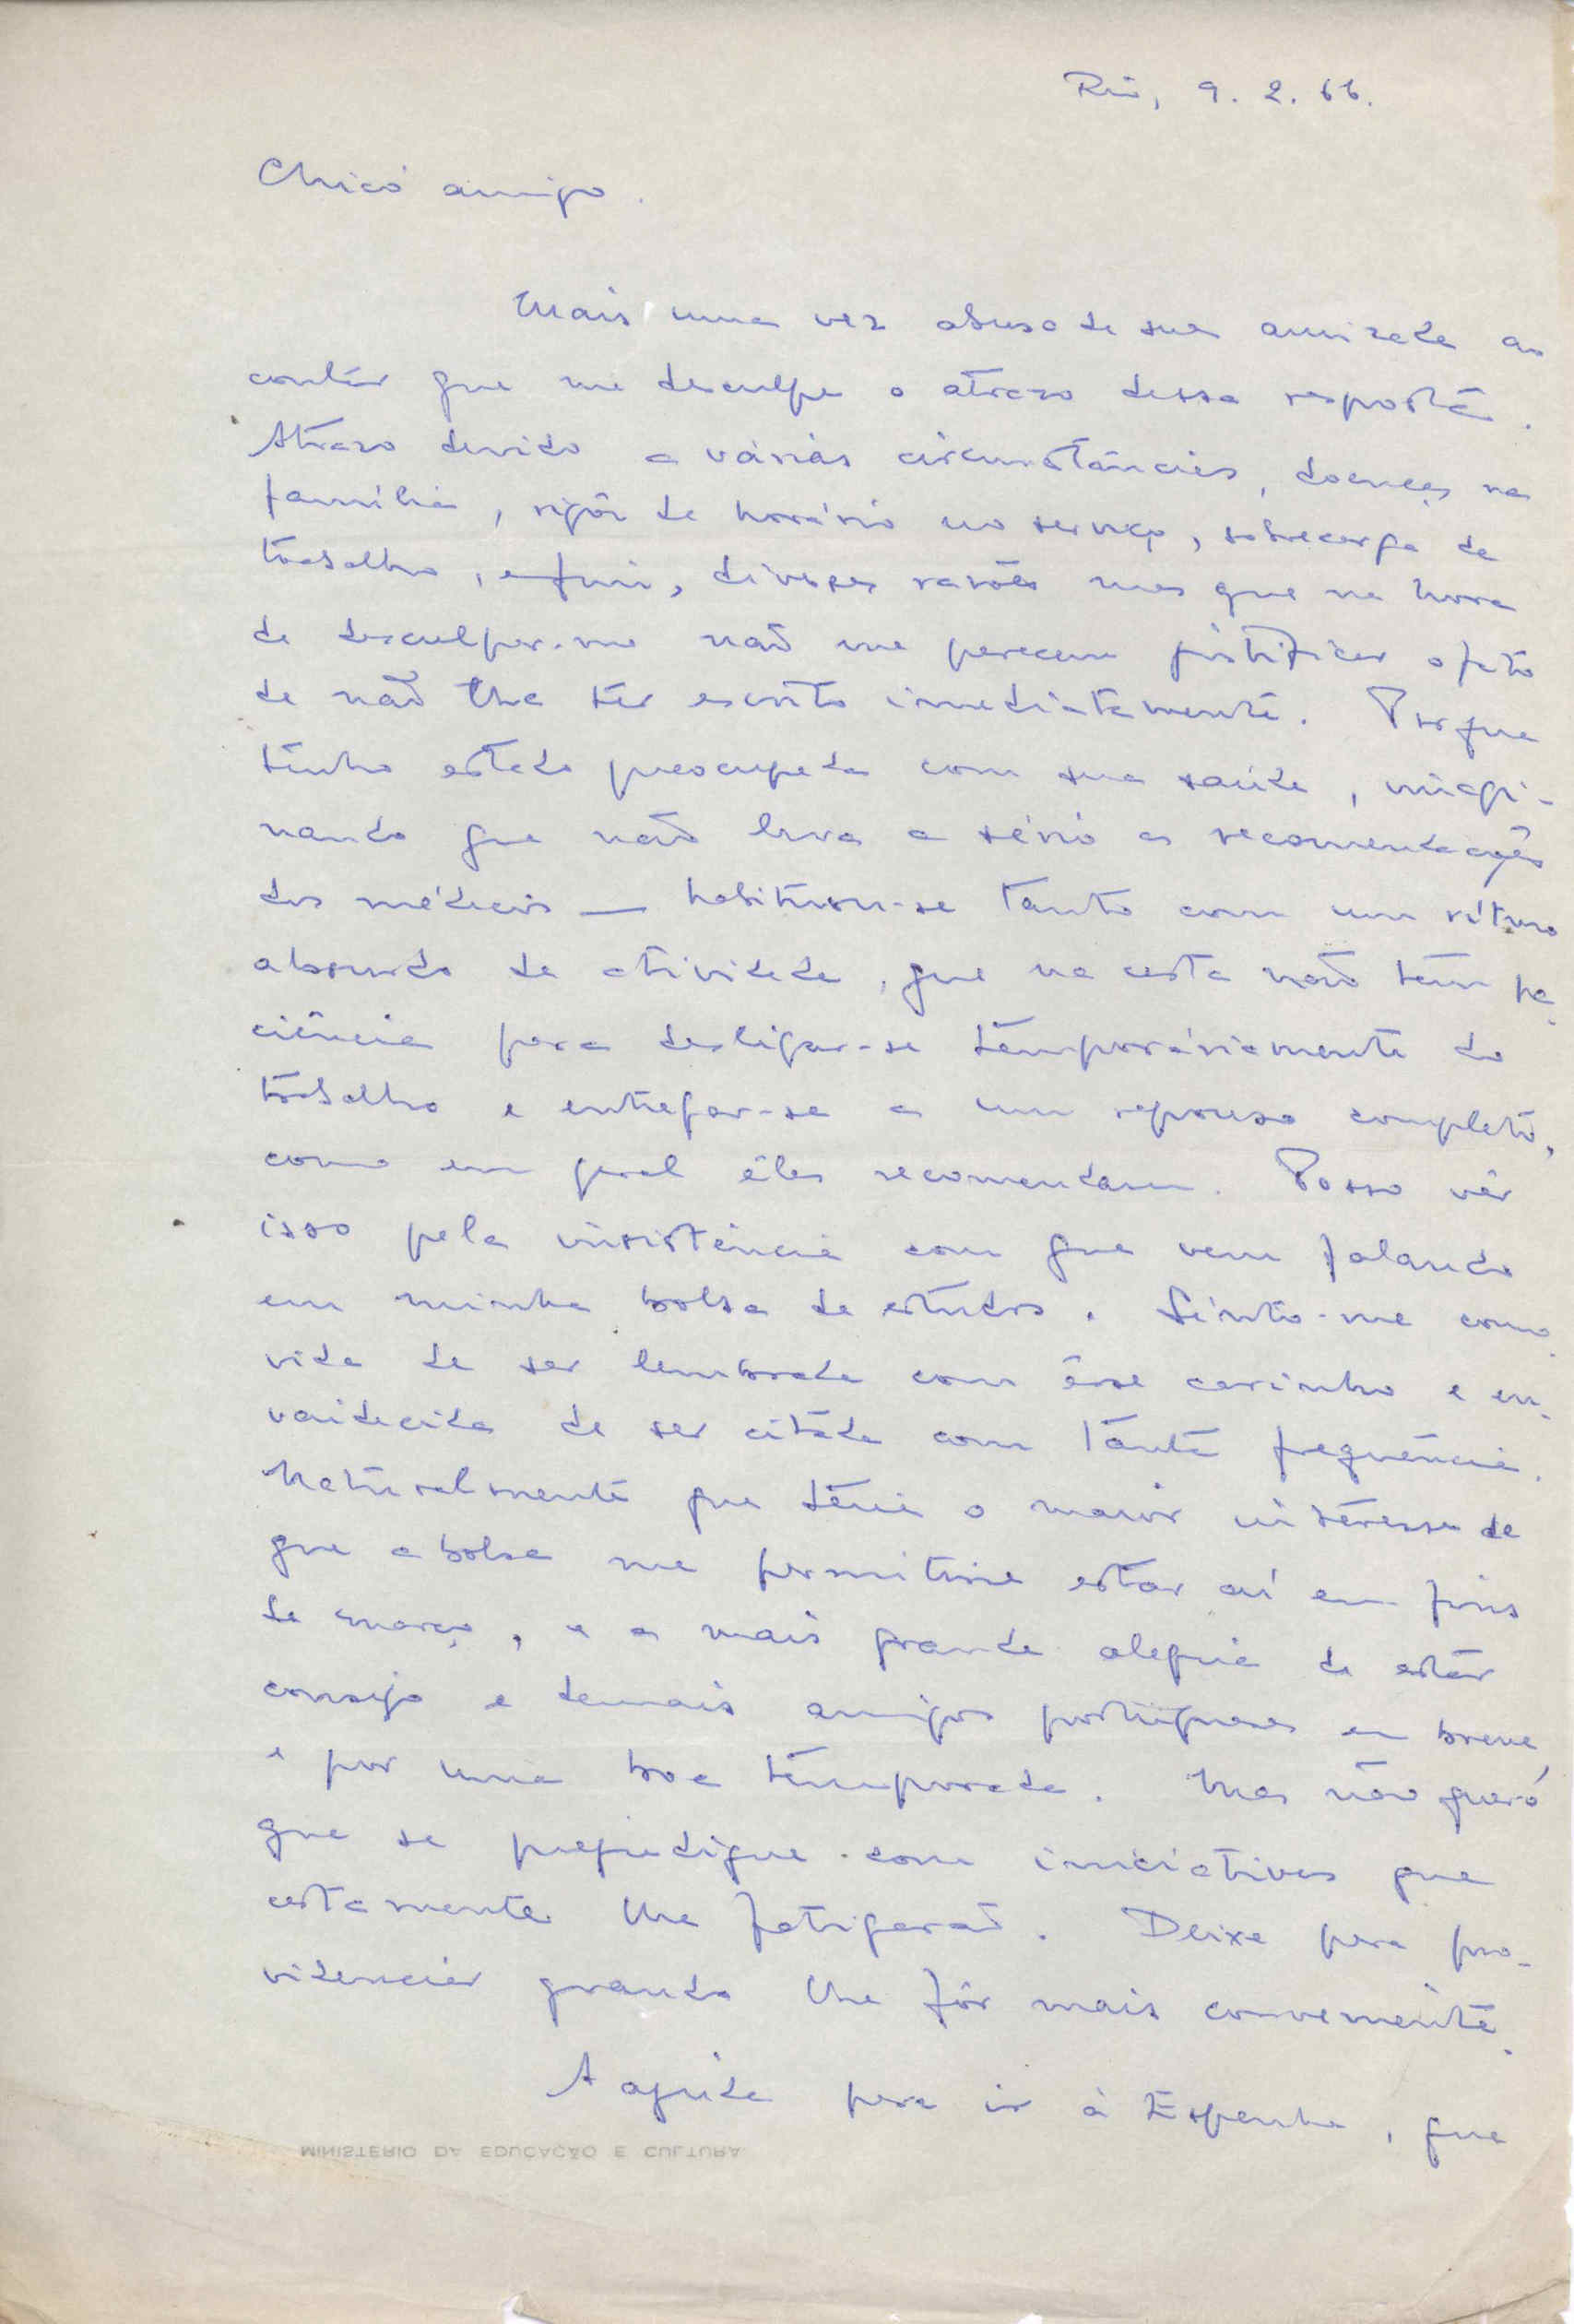 Rio, 9.2.66.
Chico amigo.
Mais uma vez abuso de sua amizade ao
contar que me desculpe o atrazo dessa resposta.
Atrazo devido a várias circunstâncias, doenças na
família, rigôr de horário no serviço, sobrecarga de
trabalho, enfim, diversas razões mas que na hora
de desculpar-me não me parecem justificar o fato
de não lhe ter escrito imediatamente. Porque
tenho estado preocupada com sua saúde, imagi-
nando que não leva a sério as recomendações
dos médicos — habituou-se tanto com um rítmo
absurdo de atividade, que na certa não tem pa-
ciência para desligar-se temporáriamente do
trabalho e entregar-se a um repouso completo,
como em geral êles recomendam. Posso vêr
isso pela insistência com que vem falando
em minha bolsa de estudos. Sinto-me como-
vida de ser lembrada com êsse carinho e en-
vaidecida de ser citada com tanta frequência.
Naturalmente que teria o maior interesse de
que a bolsa me permitisse estar aí em fins
de março, e a mais grande alegria de estar
consigo e demais amigos portugueses em breve,
e por uma boa temporada. Mas não quero
que se prejudique com iniciativas que
certamente lhe fatigarão. Deixe para pro-
videnciar quando lhe fôr mais conveniente.
A ajuda para ir à Espanha, que
MINISTÉRIO DA EDUCAÇÃO E CULTURA